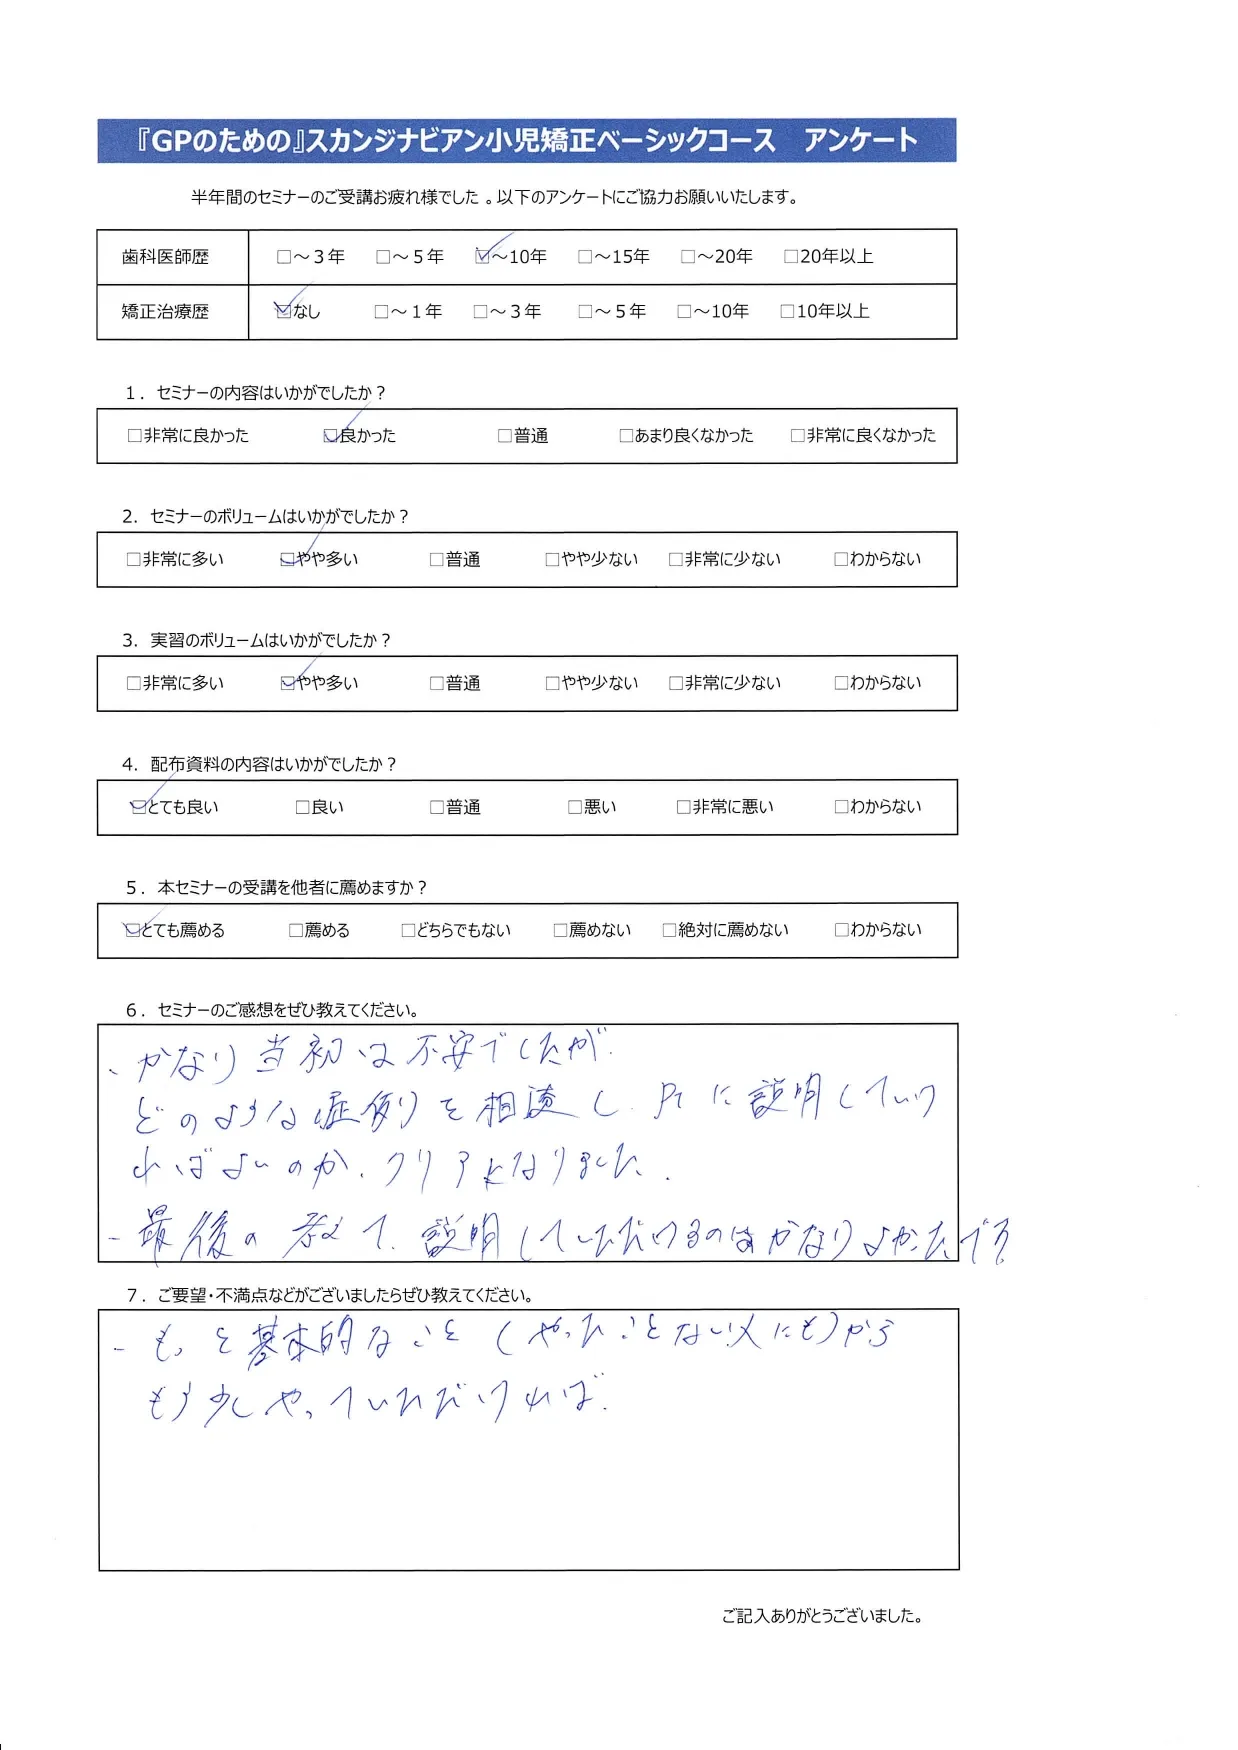 『GPのための』スカンジナビアン小児矯正ベーシックコース　アンケート
半年間のセミナーのご受講お疲れ様でした 。以下のアンケートにご協力お願いいたします。
歯科医師歴 □～３年 □～５年 ☑～10年 □～15年 □～20年 □20年以上
矯正治療歴 ☑なし □～１年 □～３年 □～５年 □～10年 □10年以上
１．セミナーの内容はいかがでしたか？
□非常に良かった ☑良かった □普通 □あまり良くなかった □非常に良くなかった
2．セミナーのボリュームはいかがでしたか？
□非常に多い ☑やや多い □普通 □やや少ない □非常に少ない □わからない
3．実習のボリュームはいかがでしたか？
□非常に多い ☑やや多い □普通 □やや少ない □非常に少ない □わからない
4．配布資料の内容はいかがでしたか？
☑とても良い □良い □普通 □悪い □非常に悪い □わからない
５．本セミナーの受講を他者に薦めますか？
☑とても薦める □薦める □どちらでもない □薦めない □絶対に薦めない □わからない
６．セミナーのご感想をぜひ教えてください。
、かなり当初は不安でしたが.
どのような症例を相談し. Ptに説明していけ
ればよいのか. クリアになりました.
- 最後の 教えて. 説明していただけるのはかなりよかったです
７．ご要望・不満点などがございましたらぜひ教えてください。
- もっと基本的なこと (やったことない人にも)から
もう少しやっていただければ.
ご記入ありがとうございました。